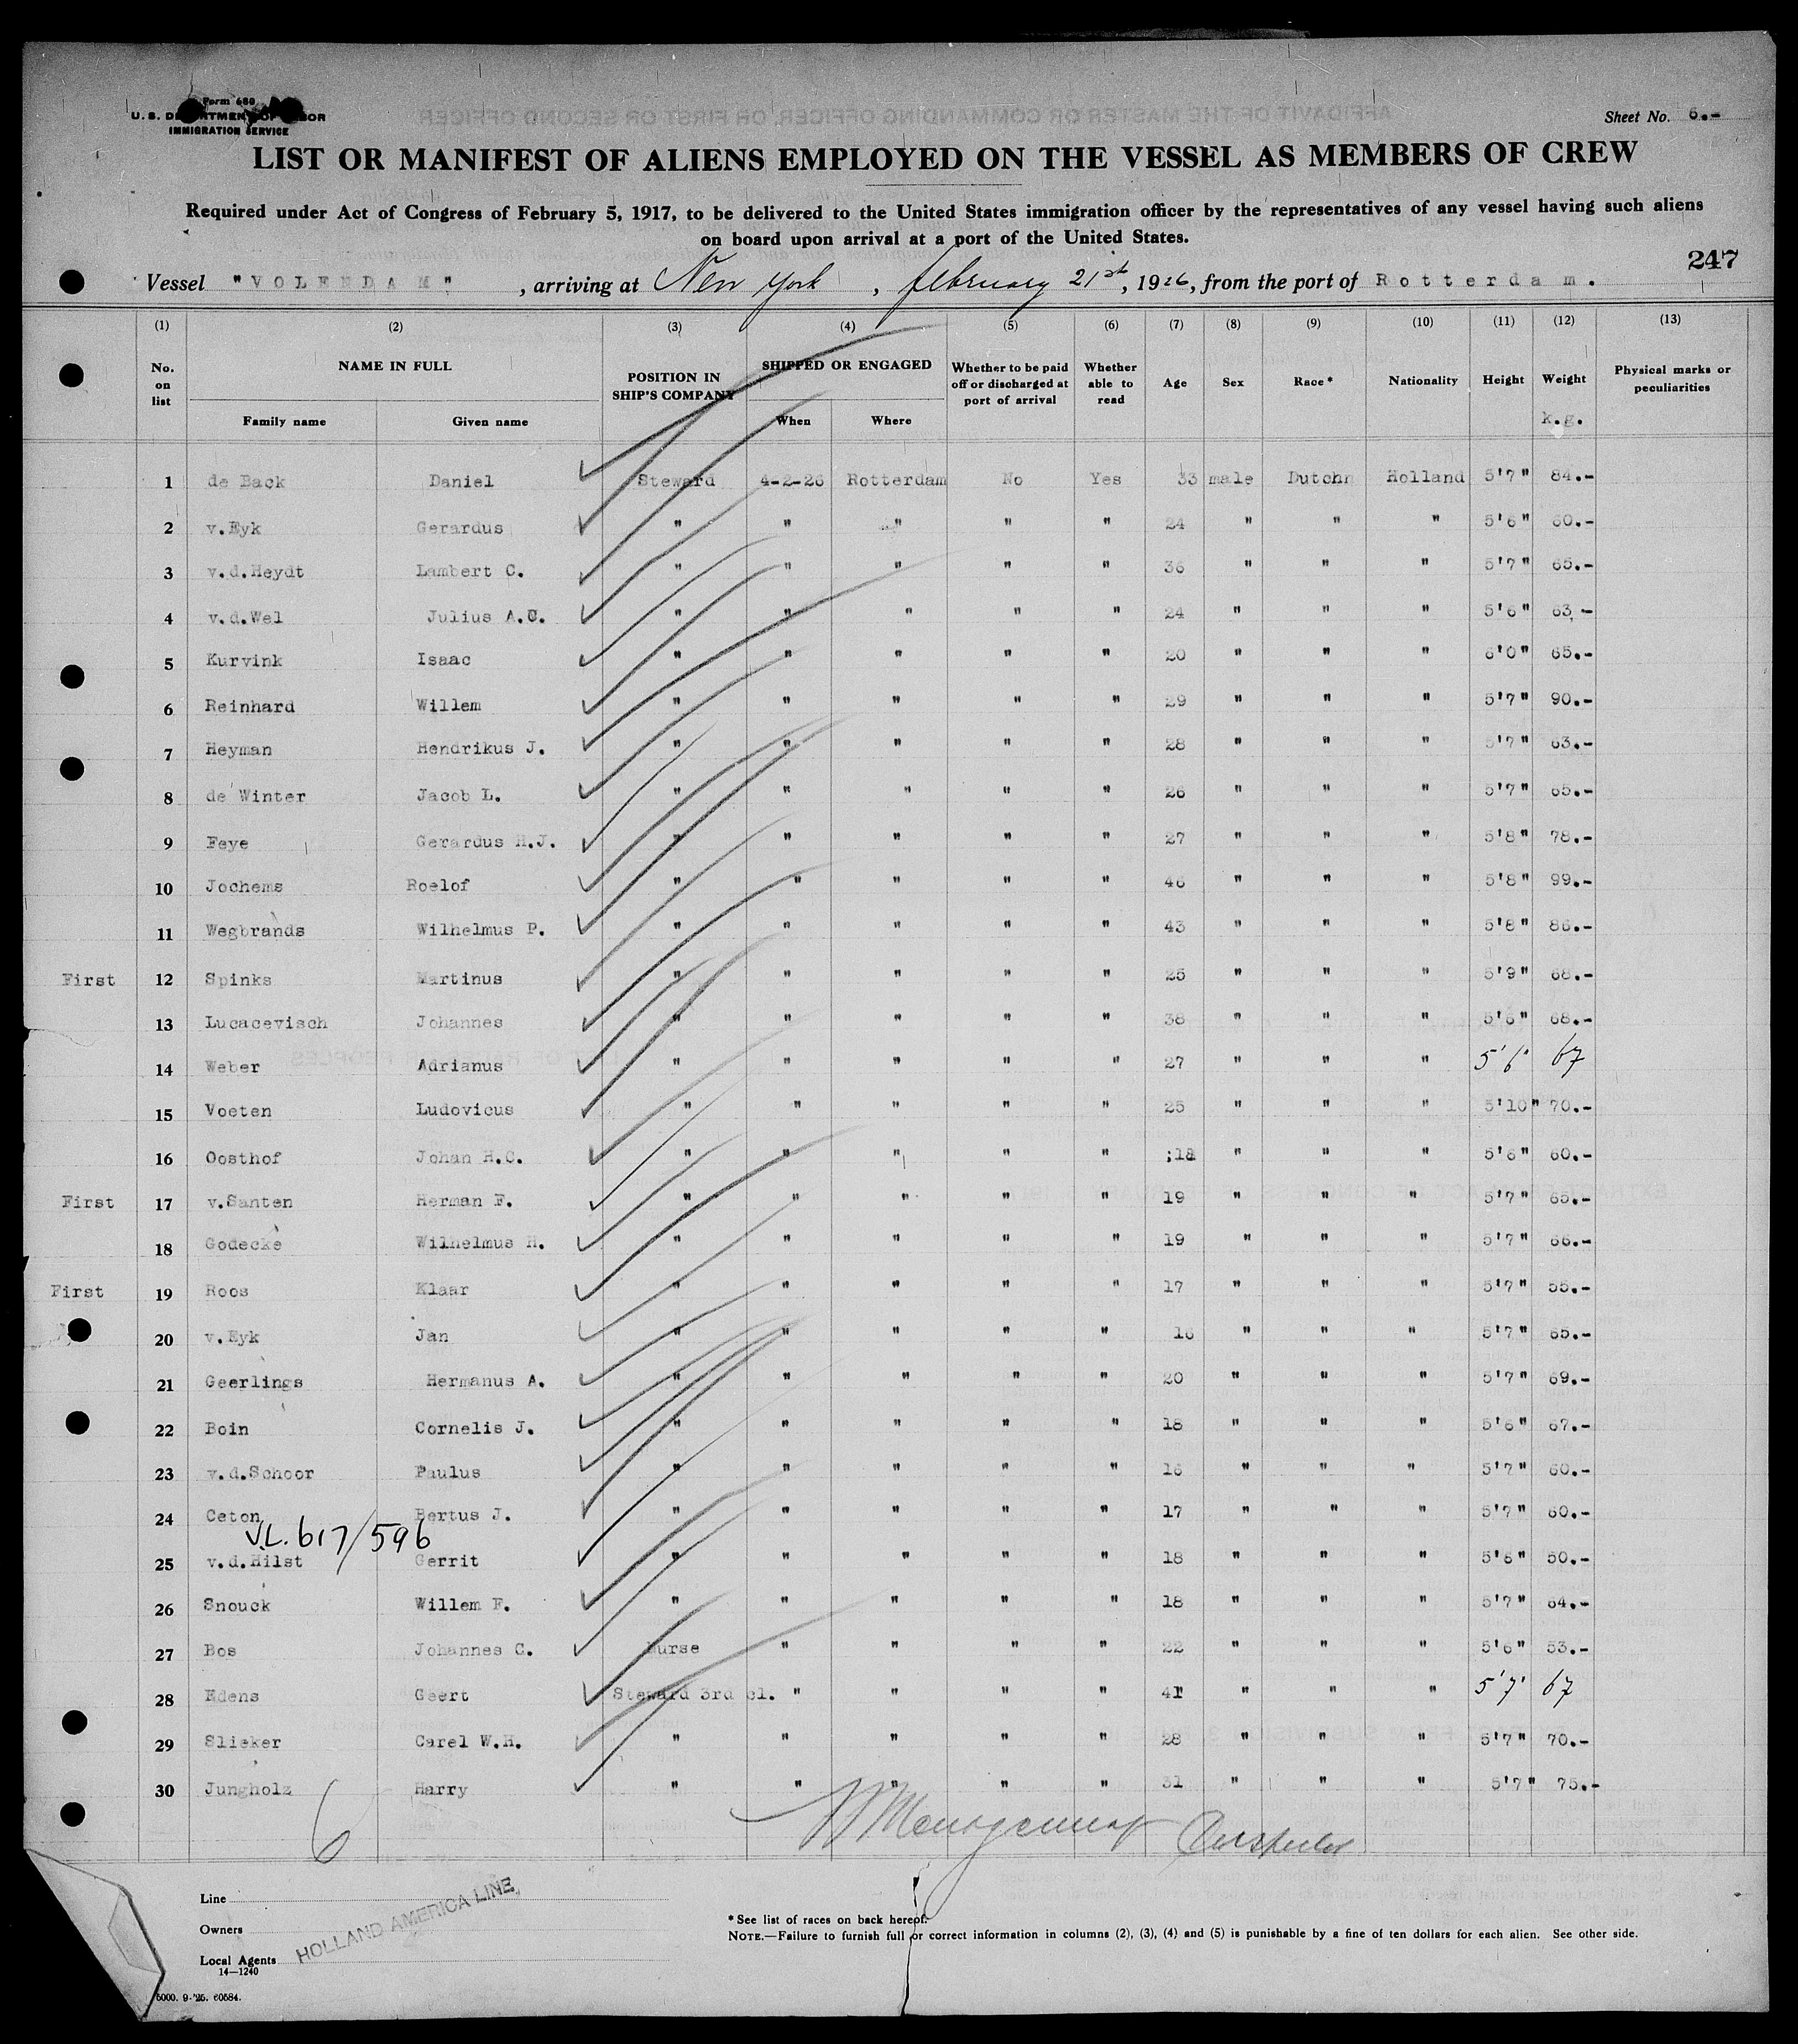 Form 680
U. S. DEPARTMENT OF LABOR
IMMIGRATION SERVICE
Sheet No. 6.-
LIST OR MANIFEST OF ALIENS EMPLOYED ON THE VESSEL AS MEMBERS OF CREW
Required under Act of Congress of February 5, 1917, to be delivered to the United States immigration officer by the representatives of any vessel having such aliens
on board upon arrival at a port of the United States.
247
Vessel "VOLENDAM", arriving at New York, february 21st, 1926, from the port of Rotterdam.
(1) (2) (3) (4) (5) (6) (7) (8) (9) (10) (11) (12) (13)
No. on list NAME IN FULL Family name Given name POSITION IN SHIP'S COMPANY SHIPPED OR ENGAGED When Where Whether to be paid off or discharged at port of arrival Whether able to read Age Sex Race* Nationality Height Weight k.g. Physical marks or peculiarities
1 de Back Daniel Steward 4-2-26 Rotterdam No Yes 33 male Dutchn Holland 5'7" 84.-
2 v.Eyk Gerardus " " " " " 24 " " " 5'6" 60.-
3 v.d.Heydt Lambert C. " " " " " 36 " " " 5'7" 65.-
4 v.d.Wel Julius A.C. " " " " " 24 " " " 5'6" 63.-
5 Kurvink Isaac " " " " " 20 " " " 6'0" 65.-
6 Reinhard Willem " " " " " 29 " " " 5'7" 90.-
7 Heyman Hendrikus J. " " " " " 28 " " " 5'7" 63.-
8 de Winter Jacob L. " " " " " 26 " " " 5'7" 65.-
9 Feye Gerardus H.J. " " " " " 27 " " " 5'8" 78.-
10 Jochems Roelof " " " " " 46 " " " 5'8" 99.-
11 Wegbrands Wilhelmus P. " " " " " 43 " " " 5'8" 86.-
First 12 Spinks Martinus " " " " " 25 " " " 5'9" 68.-
13 Lucacevisch Johannes " " " " " 38 " " " 5'6" 68.-
14 Weber Adrianus " " " " " 27 " " " 5'6" 67
15 Voeten Ludovicus " " " " " 25 " " " 5'10" 70.-
16 Oosthof Johan H.C. " " " " " 18 " " " 5'6" 60.-
First 17 v.Santen Herman F. " " " " " 19 " " " 5'7" 65.-
18 Godecke Wilhelmus H. " " " " " 19 " " " 5'7" 66.-
First 19 Roos Klaar " " " " " 17 " " " 5'7" 55.-
20 v.Eyk Jan " " " " " 16 " " " 5'7" 65.-
21 Geerlings Hermanus A. " " " " " 20 " " " 5'7" 69.-
22 Boin Cornelis J. " " " " " 18 " " " 5'6" 67.-
23 v.d.Schoor Paulus " " " " " 16 " " " 5'7" 60.-
24 Ceton Bertus J. " " " " " 17 " " " 5'7" 60.-
V.L. 617/596
25 v.d.Hilst Gerrit " " " " " 18 " " " 5'6" 50.-
26 Snouck Willem F. " " " " " 18 " " " 5'7" 64.-
27 Bos Johannes C. Nurse " " " " 22 " " " 5'6" 53.-
28 Edens Geert Steward 3rd cl. " " " " 41 " " " 5'7' 67
29 Slieker Carel W.H. " " " " " 28 " " " 5'7" 70.-
30 Jungholz Harry " " " " " 31 " " " 5'7" 75.-
6
Inspector
Line
Owners
Local Agents
HOLLAND AMERICA LINE
14—1240
5000. 9-'25. 60584.
* See list of races on back hereof.
NOTE.—Failure to furnish full or correct information in columns (2), (3), (4) and (5) is punishable by a fine of ten dollars for each alien. See other side.